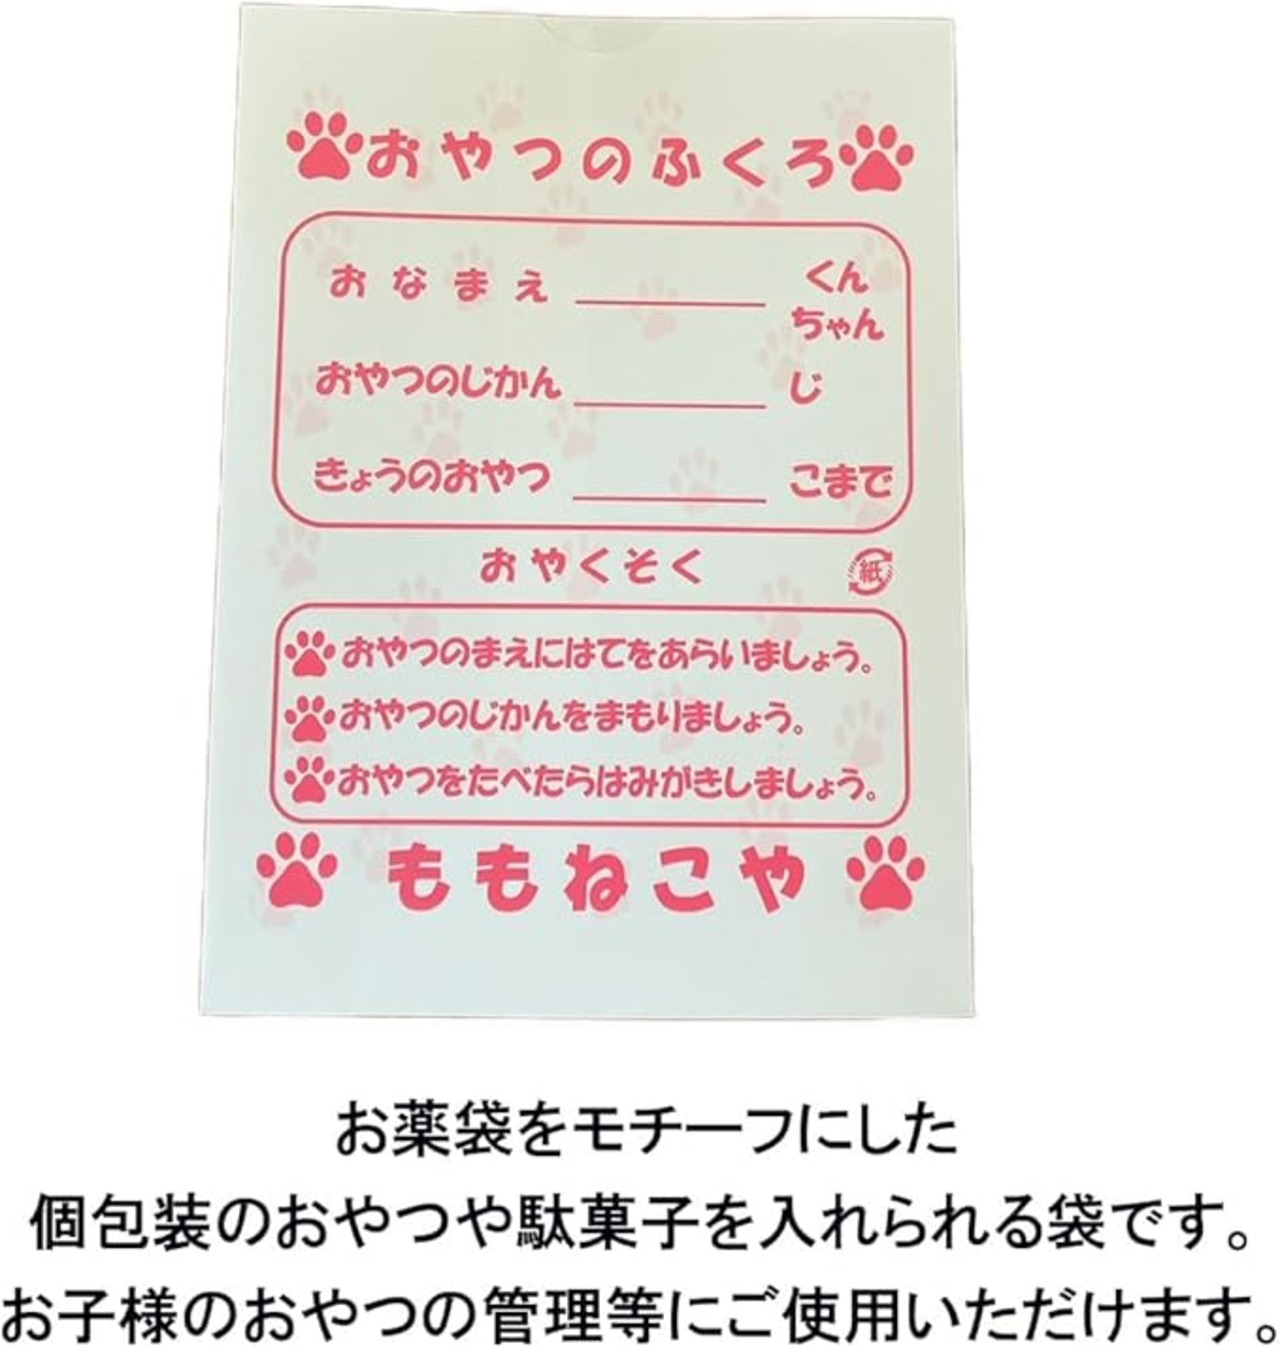 おやつのふくろ
おなまえ くん
ちゃん
おやつのじかん じ
きょうのおやつ こまで
おやくそく 紙
おやつのまえにはてをあらいましょう。
おやつのじかんをまもりましょう。
おやつをたべたらはみがきしましょう。
ももねこや
お薬袋をモチーフにした
個包装のおやつや駄菓子を入れられる袋です。
お子様のおやつの管理等にご使用いただけます。